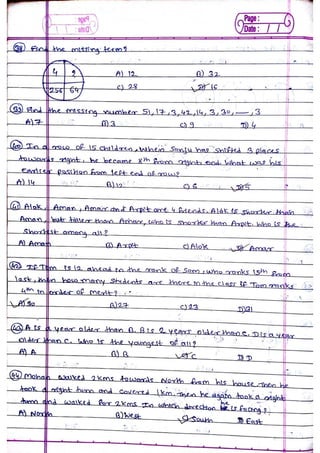 Page :
Date : / /
38 Find the missing term?
4 ?
256 64
A) 12 B) 32
c) 28 D) 16
39 Find the missing number 51,17,3,42,14,3,30,—,3
A) 7 B) 3 c) 9 D) 4
40 In a row of 15 children, when Sanju has shifted 3 places
towards right, he became 8th from right end what was his
earlier position from left end of row?
A) 14 B) 12 c) 6 D) 5
41 Alok, Aman, Amar and Arpit are 4 friends. Alok is shorter than
Aman, but taller than Amar, who is shorter than Arpit. who is the
Shortest among all?
A) Aman B) Arpit c) Alok D) Amar
42 If Tom is 12 ahead in the rank of Sam, who ranks 15th from
last, then how many students are there in the class if Tom ranks
4th in order of merit?
A) 30 B) 27 c) 23 D) 31
43 A is a year older than B. B is 2 years older than c. D is a year
older than c. who is the youngest of all?
A) A B) B c) C D) D
44 Mohan walked 2kms towards North from his house. Then he
took a right turn and covered 1km. Then he again took a right
turn and walked for 2kms. In which direction he is facing?
A) North B) West c) South D) East